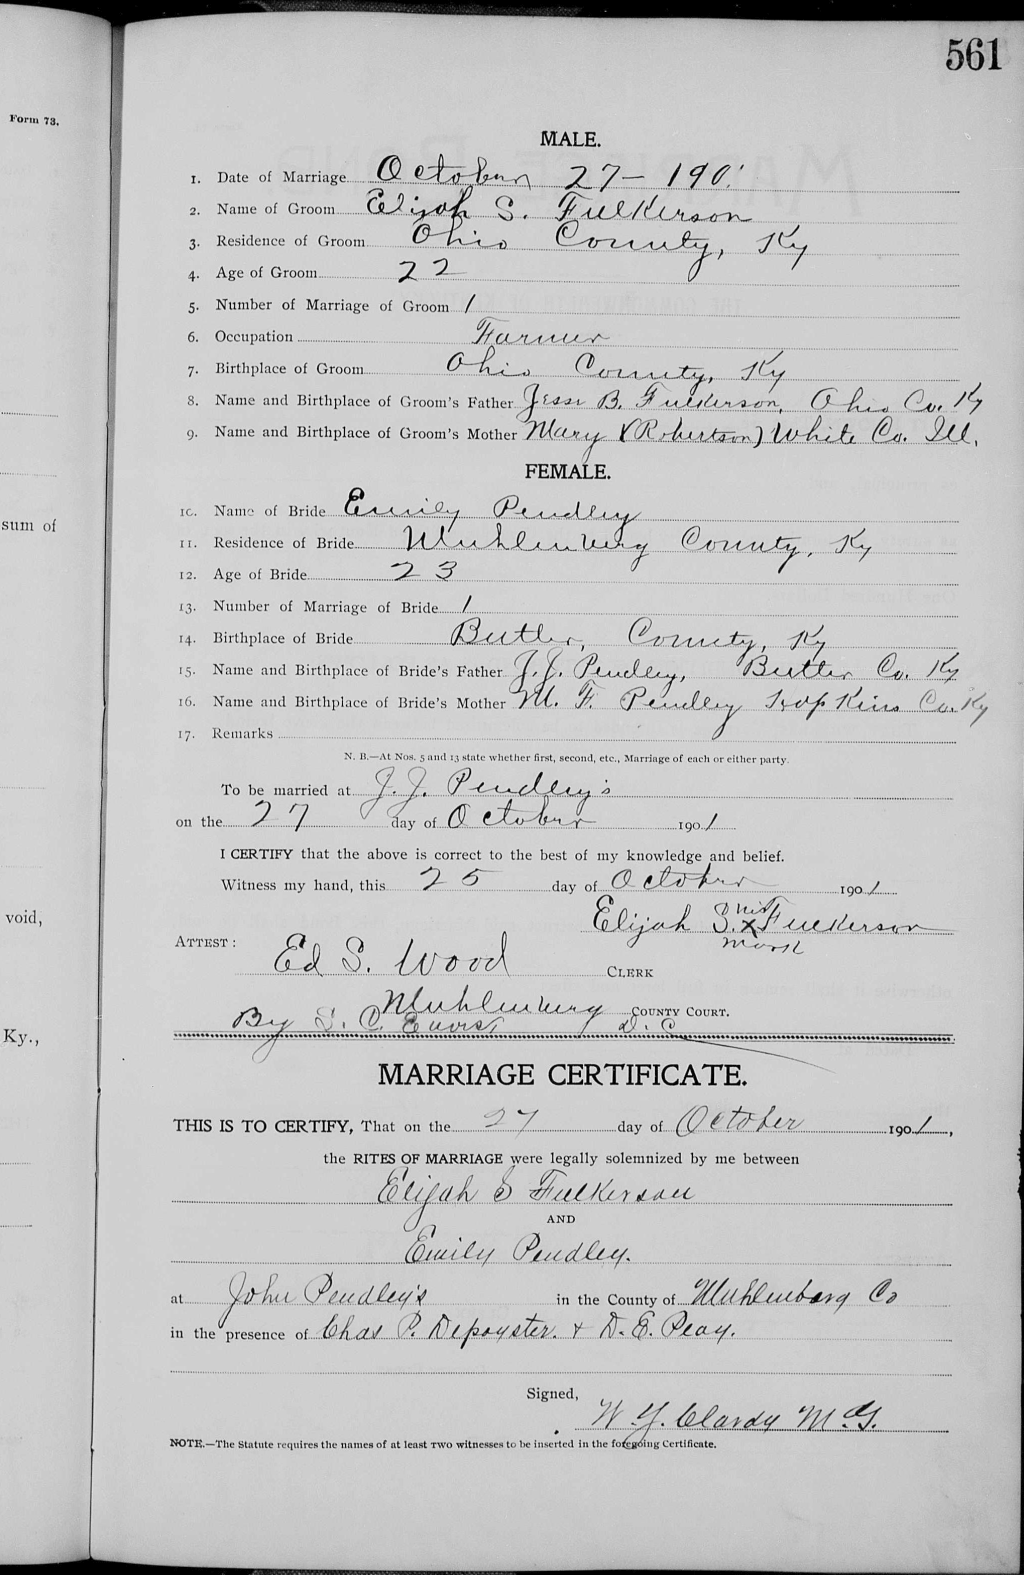 561
Form 73.
MALE.
1. Date of Marriage October 27 - 190
2. Name of Groom Elijah S. Fulkerson
3. Residence of Groom Ohio County, Ky
4. Age of Groom 22
5. Number of Marriage of Groom 1
6. Occupation Farmer
7. Birthplace of Groom Ohio County, Ky
8. Name and Birthplace of Groom's Father Jesse B. Fulkerson, Ohio Co. Ky
9. Name and Birthplace of Groom's Mother Mary (Robertson) White Co. Ill.
FEMALE.
10. Name of Bride Emily Pendley
sum of
11. Residence of Bride Muhlenberg County, Ky
12. Age of Bride 23
13. Number of Marriage of Bride 1
14. Birthplace of Bride Butler, County, Ky
15. Name and Birthplace of Bride's Father J. J. Pendley, Butler Co. Ky
16. Name and Birthplace of Bride's Mother M. F. Pendley Hopkins Co. Ky
17. Remarks
N. B.—At Nos. 5 and 13 state whether first, second, etc., Marriage of each or either party.
To be married at J. J. Pendley's
on the 27 day of October 1901
I CERTIFY that the above is correct to the best of my knowledge and belief.
Witness my hand, this 25 day of October 1901
void,
his
Elijah S. x Fulkerson
mark
ATTEST:
Ed S. Wood CLERK
Muhlenberg COUNTY COURT.
By S. C. D. C.
Ky.,
MARRIAGE CERTIFICATE.
THIS IS TO CERTIFY, That on the 27 day of October 1901,
the RITES OF MARRIAGE were legally solemnized by me between
Elijah S Fulkerson
AND
Emily Pendley.
at John Pendley's in the County of Muhlenberg Co
in the presence of Chas P. Depoyster. + D. E. Peay.
Signed,
W. Y. Clardy M. G.
NOTE.—The Statute requires the names of at least two witnesses to be inserted in the foregoing Certificate.